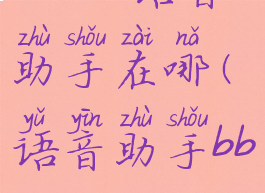 zhù shǒu zài nǎ
助手在哪(
yǔ yīn zhù shǒu
语音助手bb